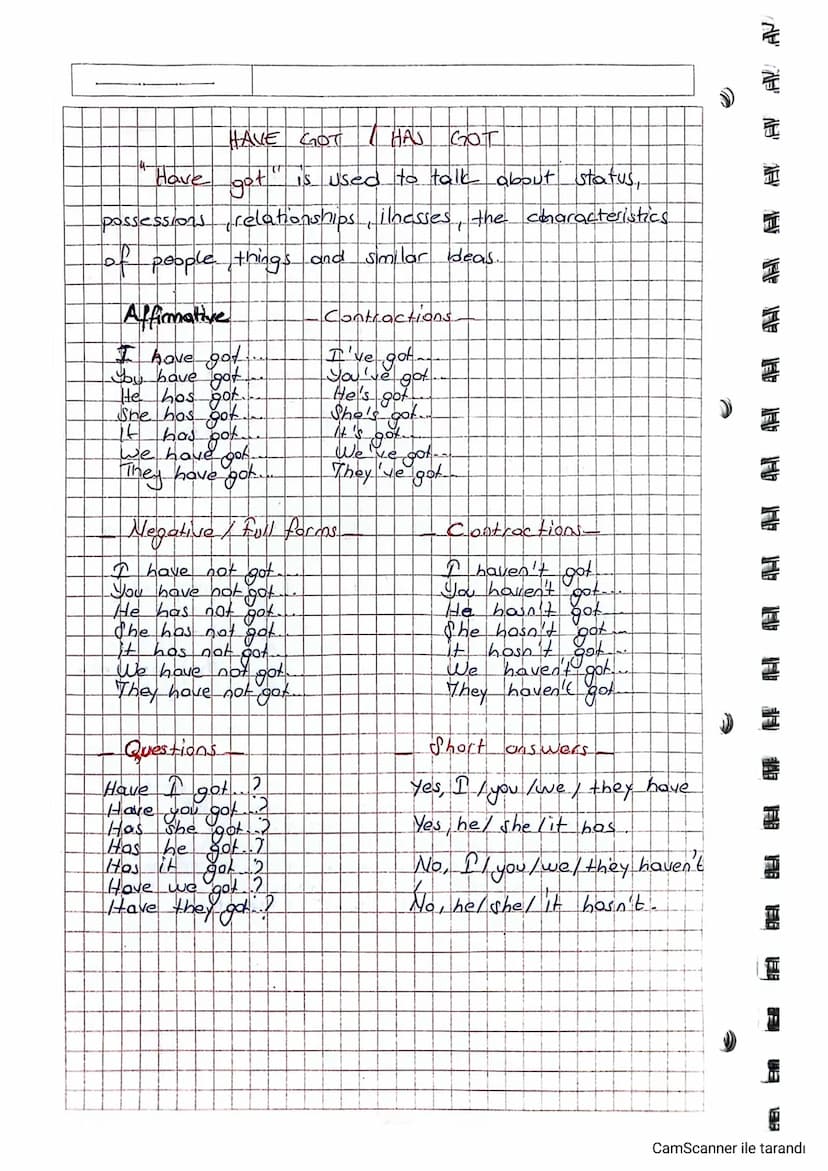 HAVE GOT / HAS GOT
"Have got" is used to talk about status,
possessions, relationships, ilnesses, the characteristics
of people, things and similar ideas.
Affirmative
I have got....
You have got...
He has got...
She has got...
It has got...
We have got...
They have got...
- Contractions -
I've got...
You've got...
He's got...
She's got...
It's got...
We've got...
They've got...
- Negative / Full forms -
I have not got...
You have not got...
He has not got...
She has not got...
it has not got...
We have not got...
They have not got...
- Contractions -
I haven't got...
You haven't got...
He hasn't got...
She hasn't got...
it hasn't got...
We haven't got...
They haven't got...
- Questions -
Have I got...?
Have you got...?
Has she got...?
Has he got...?
Has it got...?
Have we got...?
Have they got...?
- Short answers -
Yes, I / you / we / they have
Yes, he / she / it has.
No, I / you / we / they haven't
No, he / she / it hasn't.
CamScanner ile tarandı